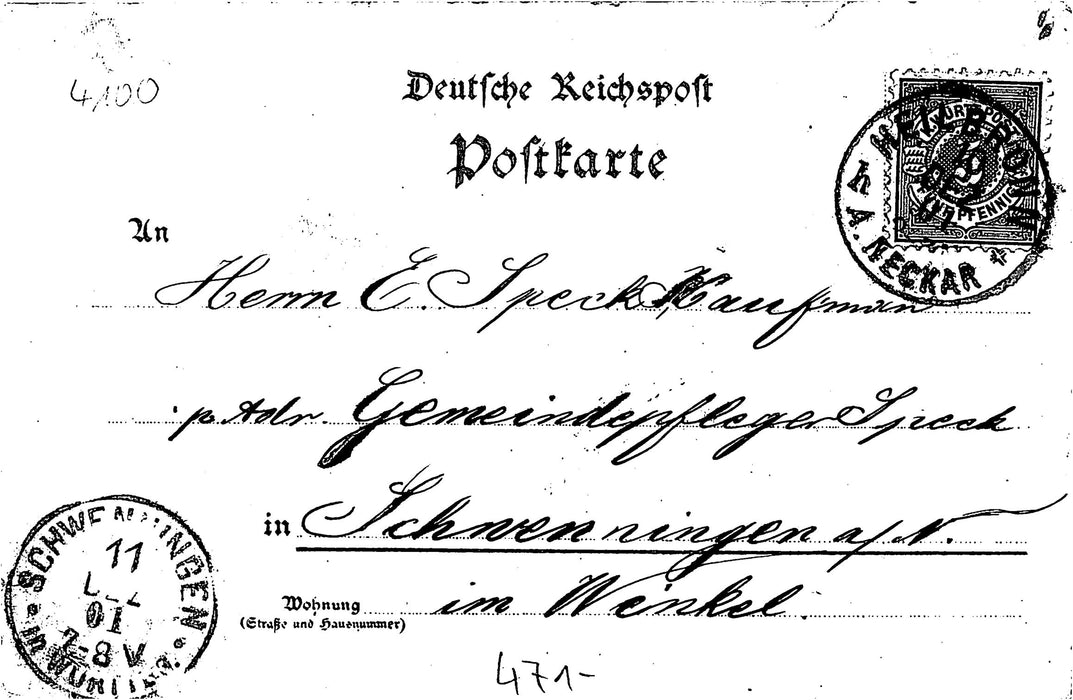 4100
Deutsche Reichspost
Postkarte
WÜRTT. POST
PFENNIG
HEILBRONN
A. NECKAR
An
Herrn E. Speck Kaufman
p. Adr. Gemeindepfleger Speck
in Schwenningen a/N.
Wohnung im Winkel
(Straße und Hausnummer)
SCHWENNINGEN
11
01
7-8 V
in WÜRTTBG.
471-